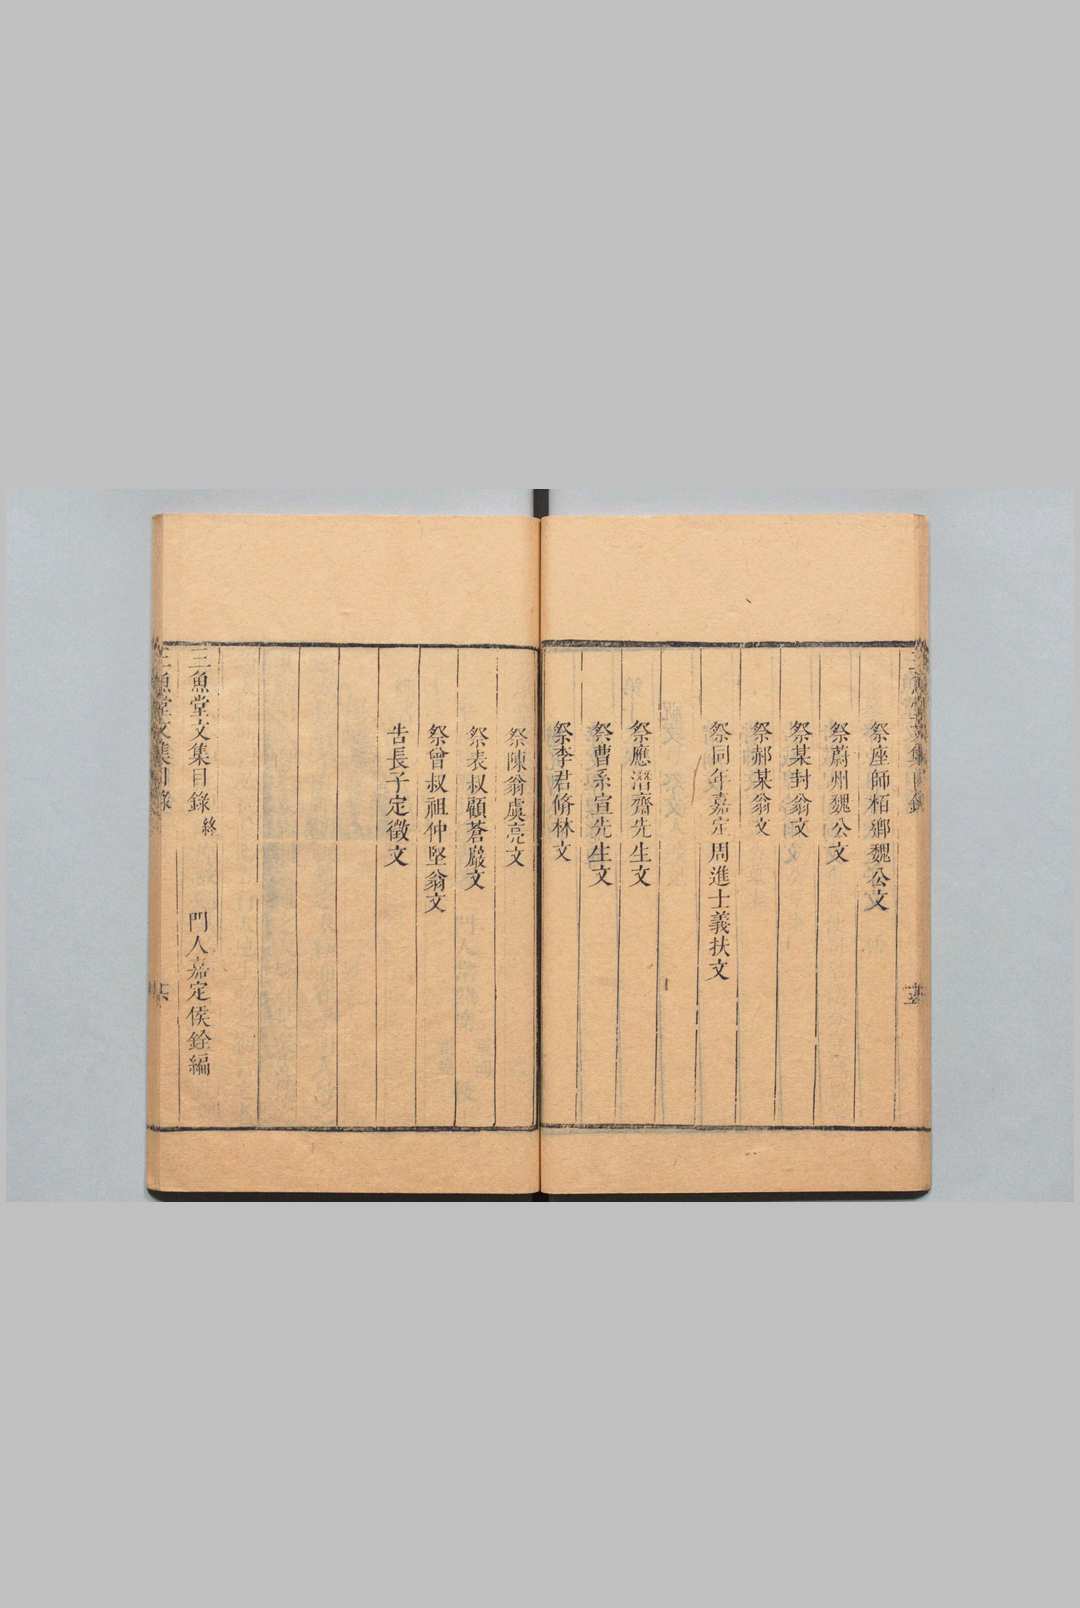 祭座師栢鄉魏公文
祭蔚州魏公文
祭某封翁文
祭郝某翁文
祭同年嘉定周進士義扶文
祭應潛齋先生文
祭曹系宣先生文
祭李君脩林文
祭陳翁虞亮文
祭表叔顧蒼巖文
祭曾叔祖仲堅翁文
告長子定徵文
三魚堂文集目錄終　門人嘉定侯銓編
三魚堂文集目錄